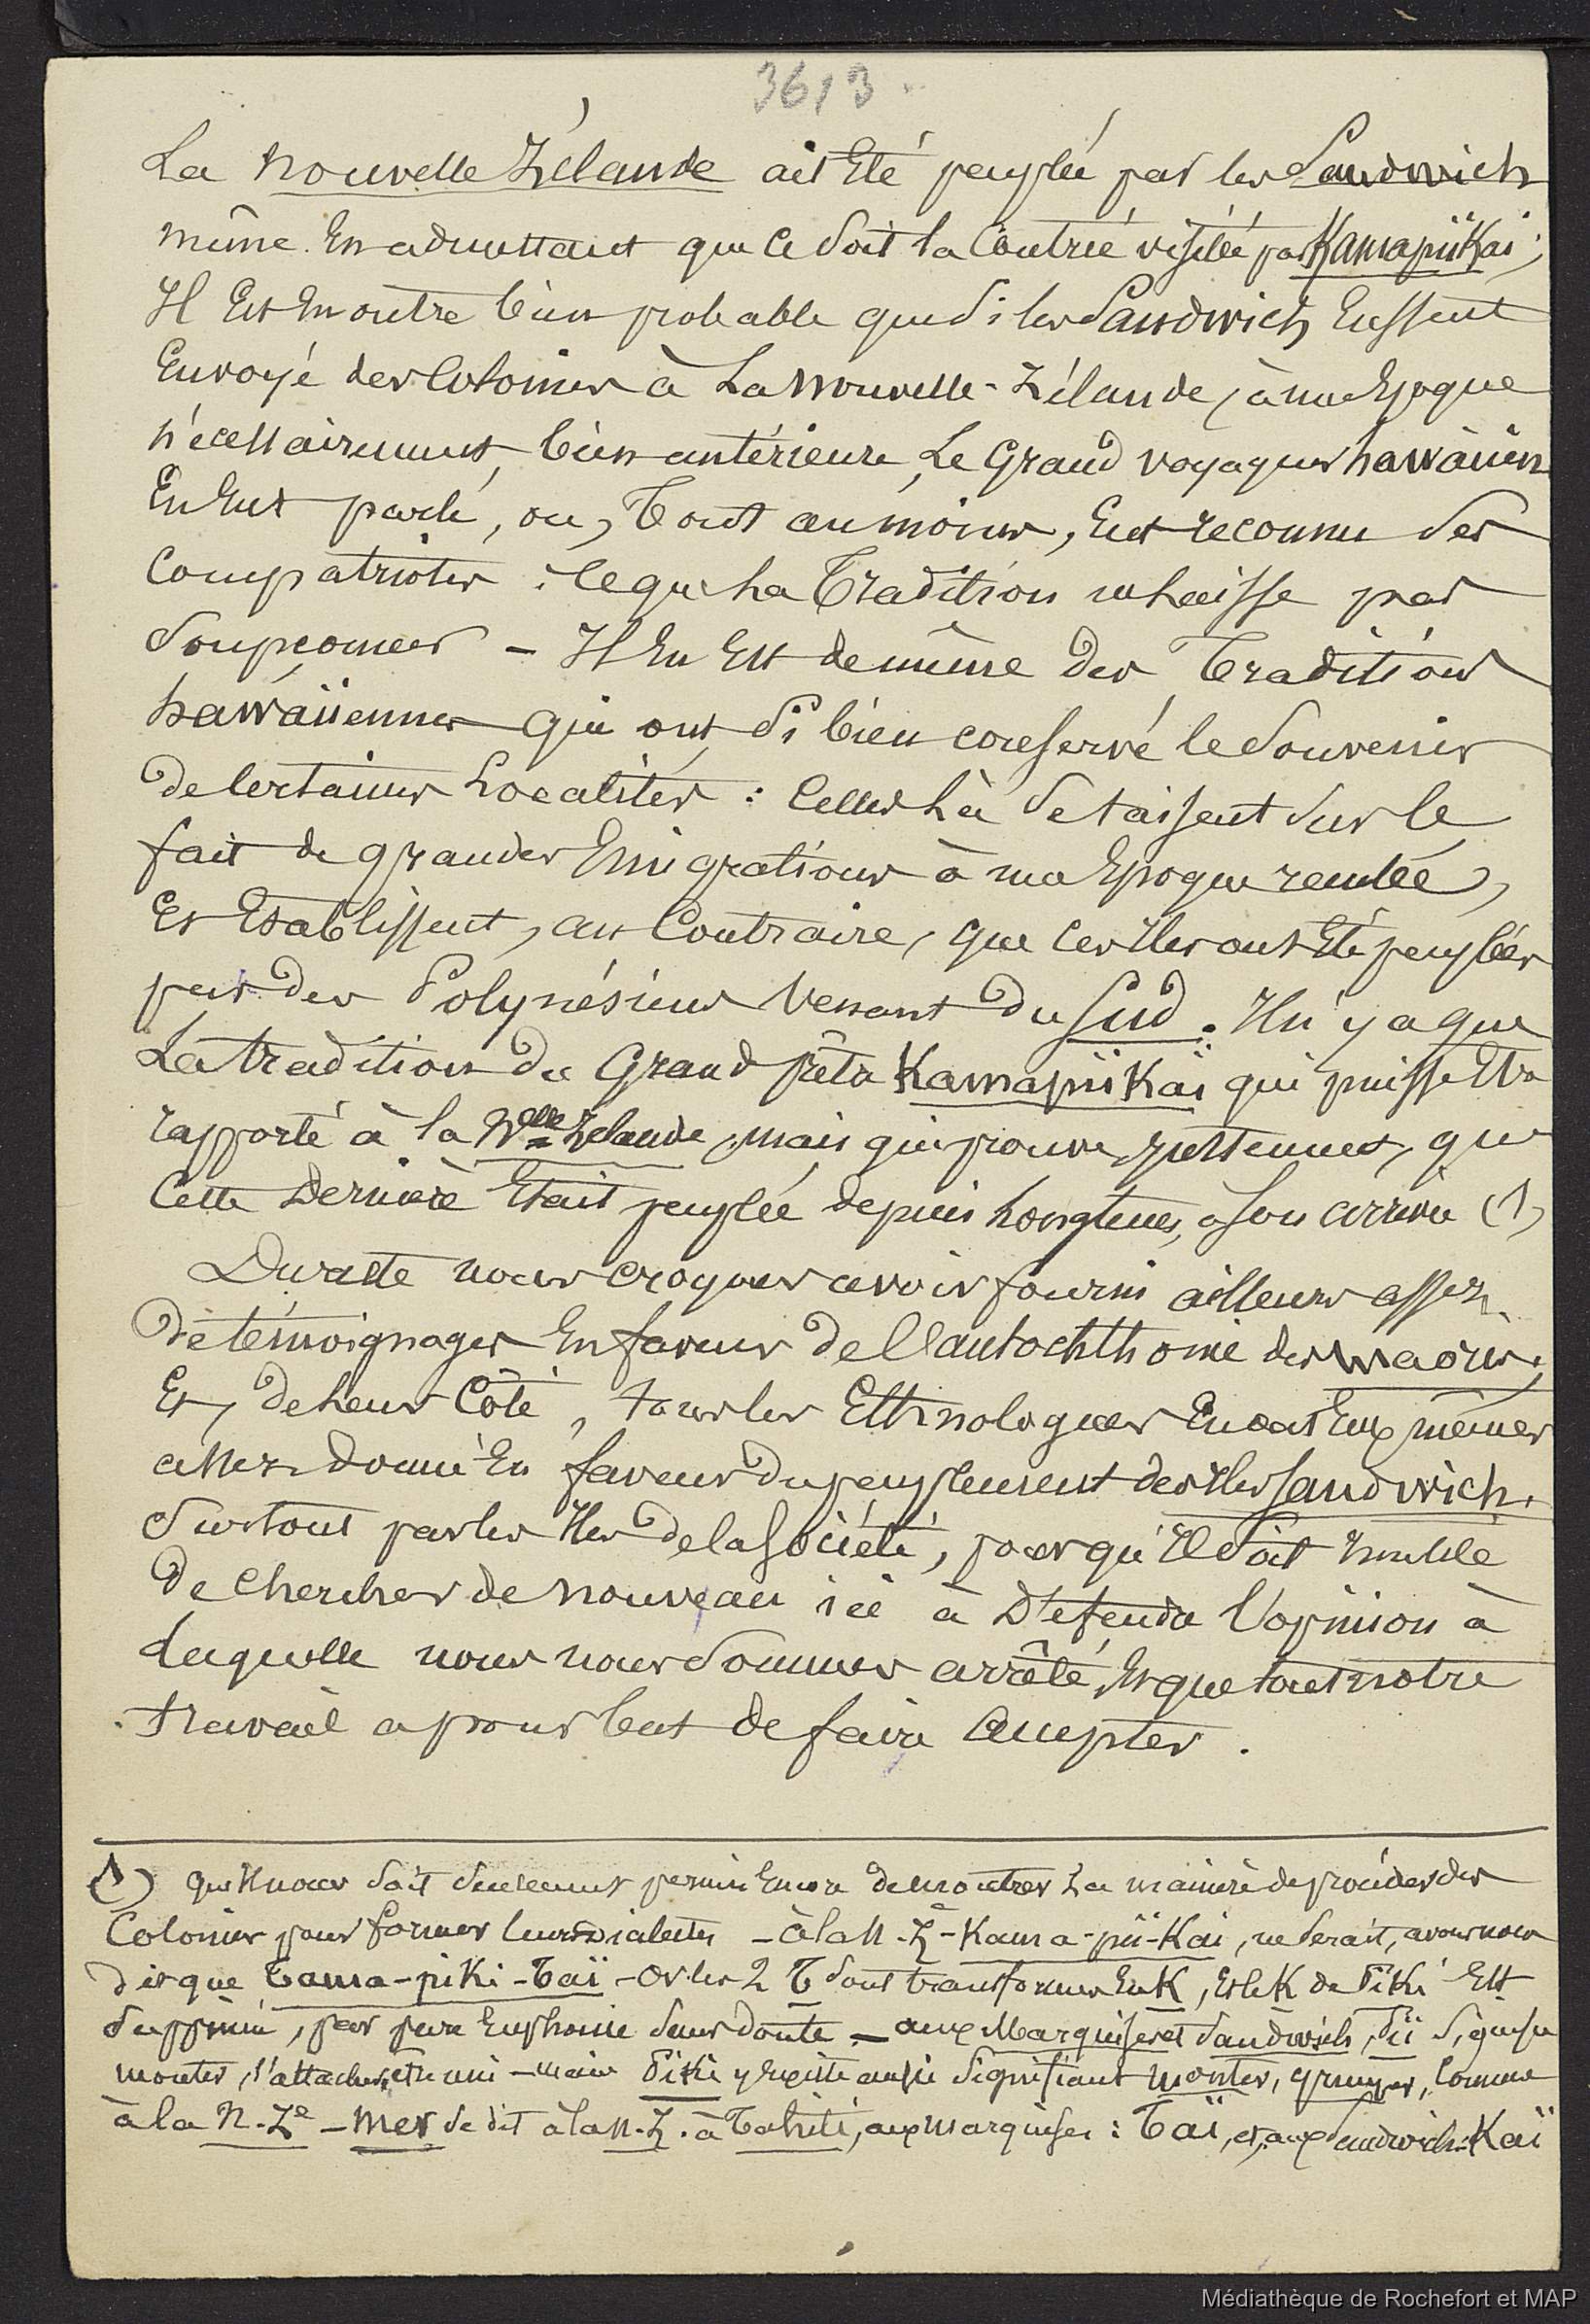 3613
La Nouvelle Zélande ait été peuplée par les Sandwich
même en admettant que ce soit la Contrée visitée par Kamapiikai;
Il est en outre bien probable que si les Sandwich eussent
envoyé des Colonies à La Nouvelle-Zélande, à une Epoque
nécessairement, bien antérieure, Le Grand voyageur hawaiien
en eut parlé, ou, Tout au moins, eut reconnu des
Compatriotes : ce que La Tradition ne laisse pas
Soupçonner - Il en est de même des Traditions
hawaiiennes qui ont si bien conservé le Souvenir
de Certaines Localités : Celles là se taisent sur le
fait de grandes Emigrations à une Epoque reculée,
et Etablissent, au Contraire, que ces Iles ont été peuplées
par des Polynésiens venant du Sud. Il n'y a que
La tradition du Grand prêtre Kamapiikaï qui puisse être
rapporté à la Nlle Zélande, mais qui prouve justement, que
Cette Dernière Etait peuplée depuis longtems, à son arrivée (1)
Du reste nous croyons avoir fourni ailleurs assez
de témoignages en faveur de L'autochthonie des Maoris;
Et, de leur Côté, tous les Ethnologues en ont Eux mêmes
assez donné en faveur du peuplement des Iles Sandwich,
Surtout par les Iles de la Société, pour qu'il soit inutile
de chercher de nouveau ici à Défendre l'opinion à
laquelle nous nous sommes arrêté, et que tout notre
travail a pour but de faire accepter.
(1) qu'il nous soit seulement permis encore de montrer La manière de procéder des
Colonies pour former leurs dialectes - à la N.Ze - Kama-pii-Kai, ne serait, avons nous
dit que Tama-piki-Taï - Or les 2 T sont transformés en K, et le K de Piki Est
Supprimé, par pure Euphonie sans doute - aux Marquises et Sandwich, Pii signifie
monter, s'attacher, être uni - mais Piki y existe aussi signifiant monter, grimper, Comme
à la N.Ze - Mer se dit à la N.Z. à Tahiti, aux Marquises : Taï, et, aux Sandwich : Kaï
Médiathèque de Rochefort et MAP